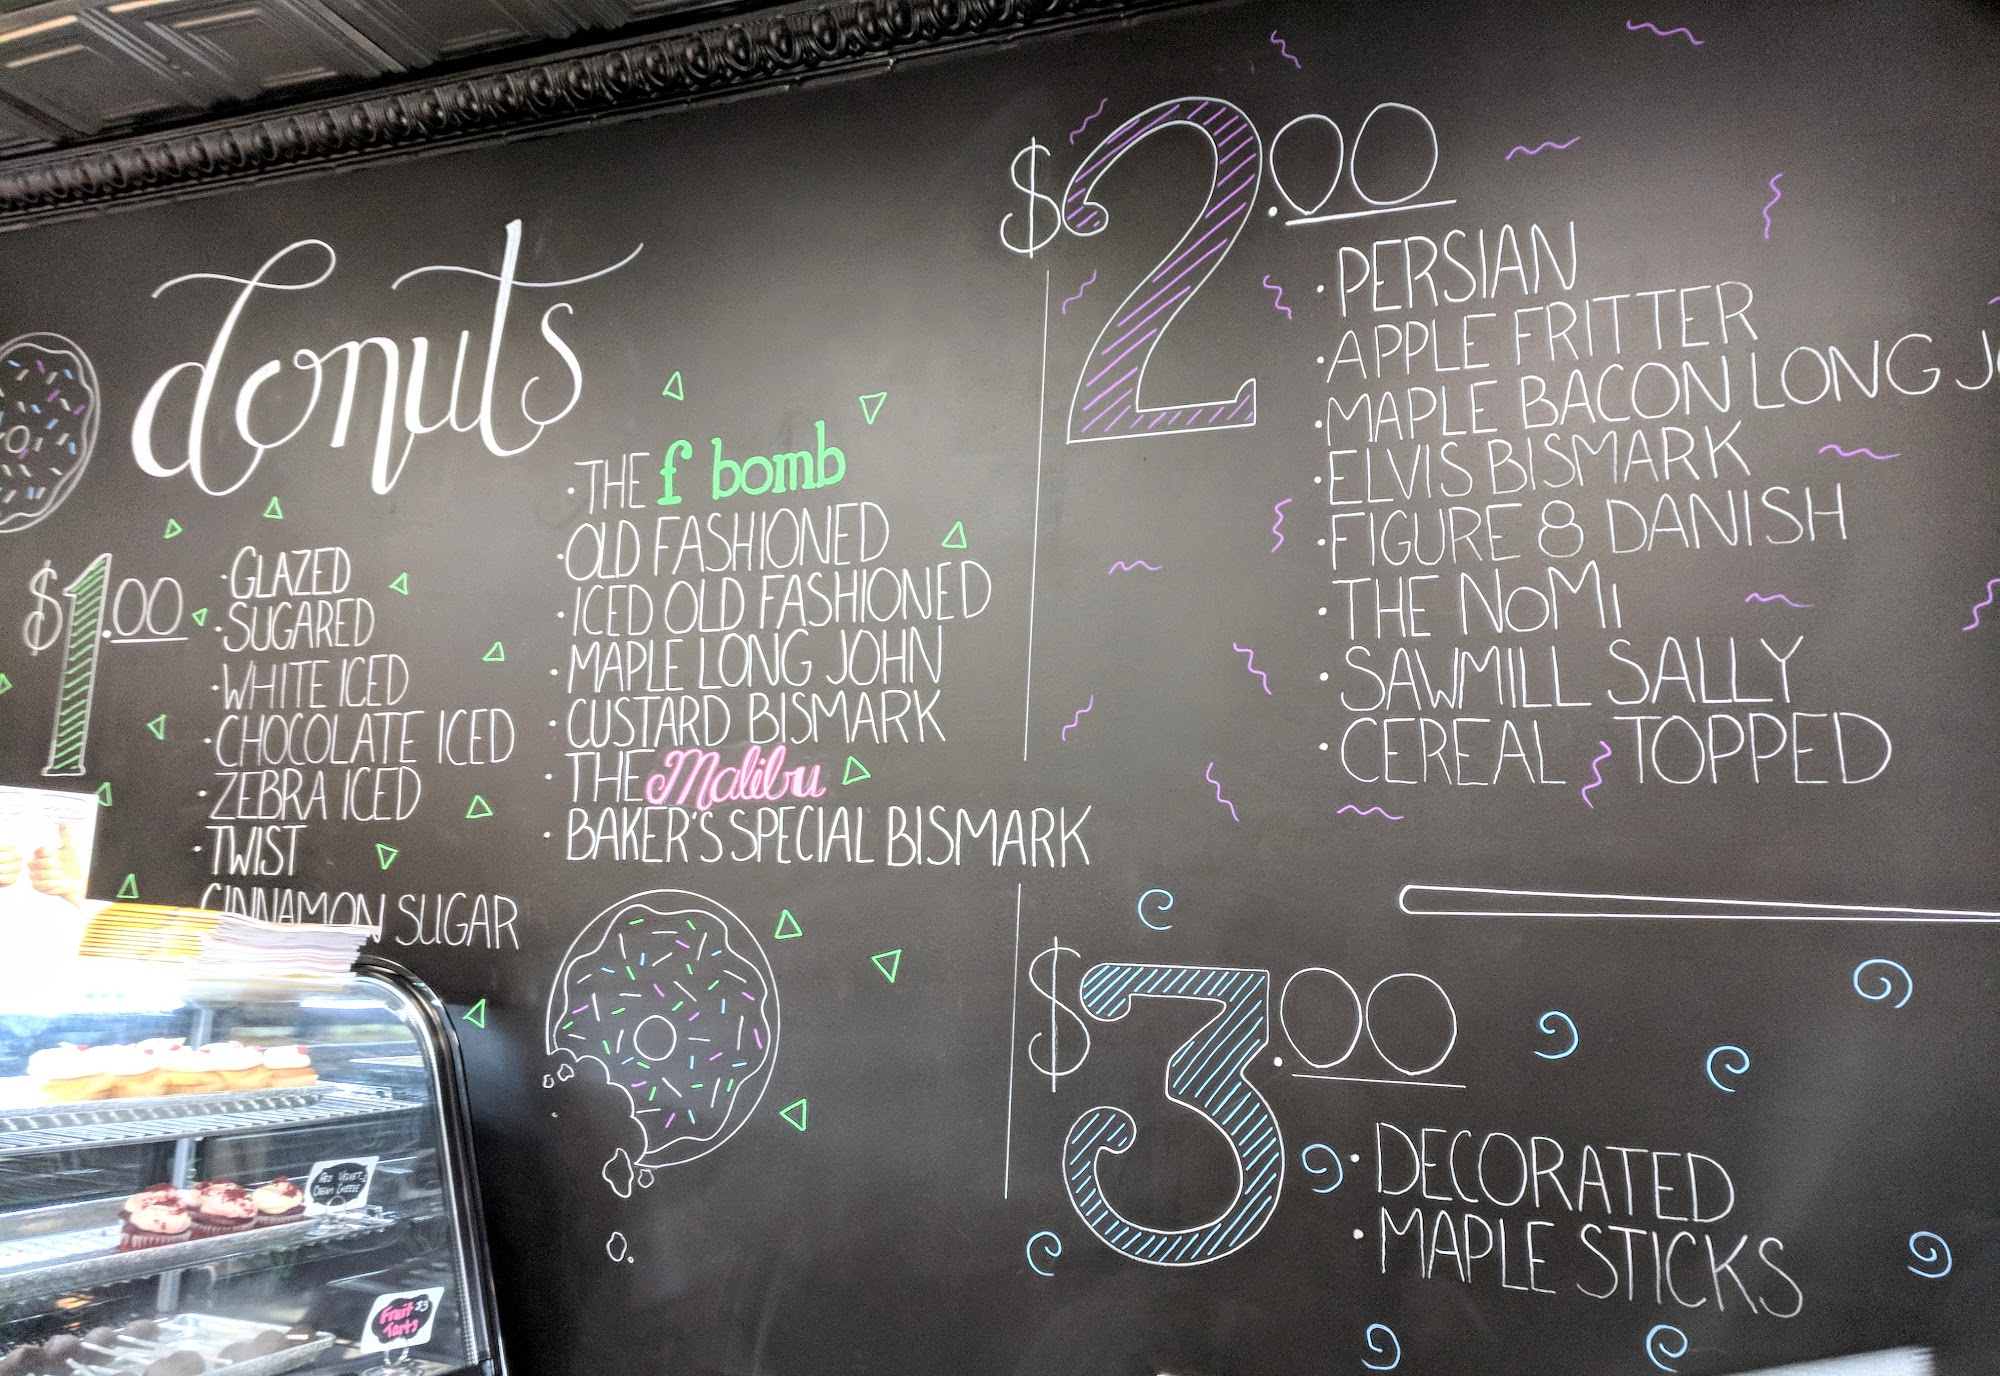 donuts
$1.00
· GLAZED
· SUGARED
· WHITE ICED
· CHOCOLATE ICED
· ZEBRA ICED
· TWIST
CINNAMON SUGAR
· THE f bomb
· OLD FASHIONED
· ICED OLD FASHIONED
· MAPLE LONG JOHN
· CUSTARD BISMARK
· THE Malibu
· BAKER'S SPECIAL BISMARK
$2.00
· PERSIAN
· APPLE FRITTER
· MAPLE BACON LONG
· ELVIS BISMARK
· FIGURE 8 DANISH
· THE NoMi
· SAWMILL SALLY
· CEREAL TOPPED
$3.00
· DECORATED
· MAPLE STICKS
RED VELVET
CREAM CHEESE
Fruit $3
Tarts